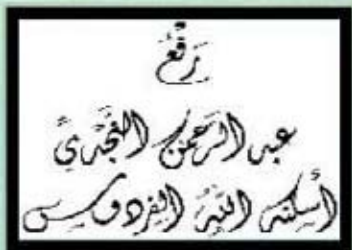 رَفْعُ
عبد الرحمن النجدي
أسكنه الله الفردوس